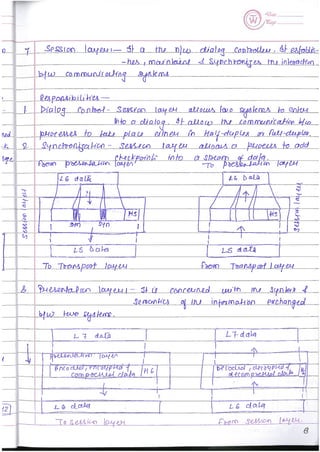 7. Session layer :— It is the n/w dialog controller. It establi-
-hes, maintains & Synchronizes the interaction
b/w communicating systems.
Responsibilities —
1 Dialog Control - Session layer allows two systems to enter
into a dialog. It allows the communication b/w
processes to take place either in Half-duplex or full-duplex.
2. Synchronization - Session layer allows a process to add
checkpoints into a stream of data.
From presentation layer To presentation layer
L6 data L6 data
H5 H5
Syn Syn
Session layer Session layer
L5 data L5 data
To Transport layer From Transport layer
8 Presentation layer :- It is concerned with the syntax &
Semantics of the information exchanged
b/w two systems.
L7 data L7 data
presentation layer
Encoded, encrypted & H6
compressed data
Decoded, decrypted &
decompressed data
L6 data L6 data
To session layer From session layer
8